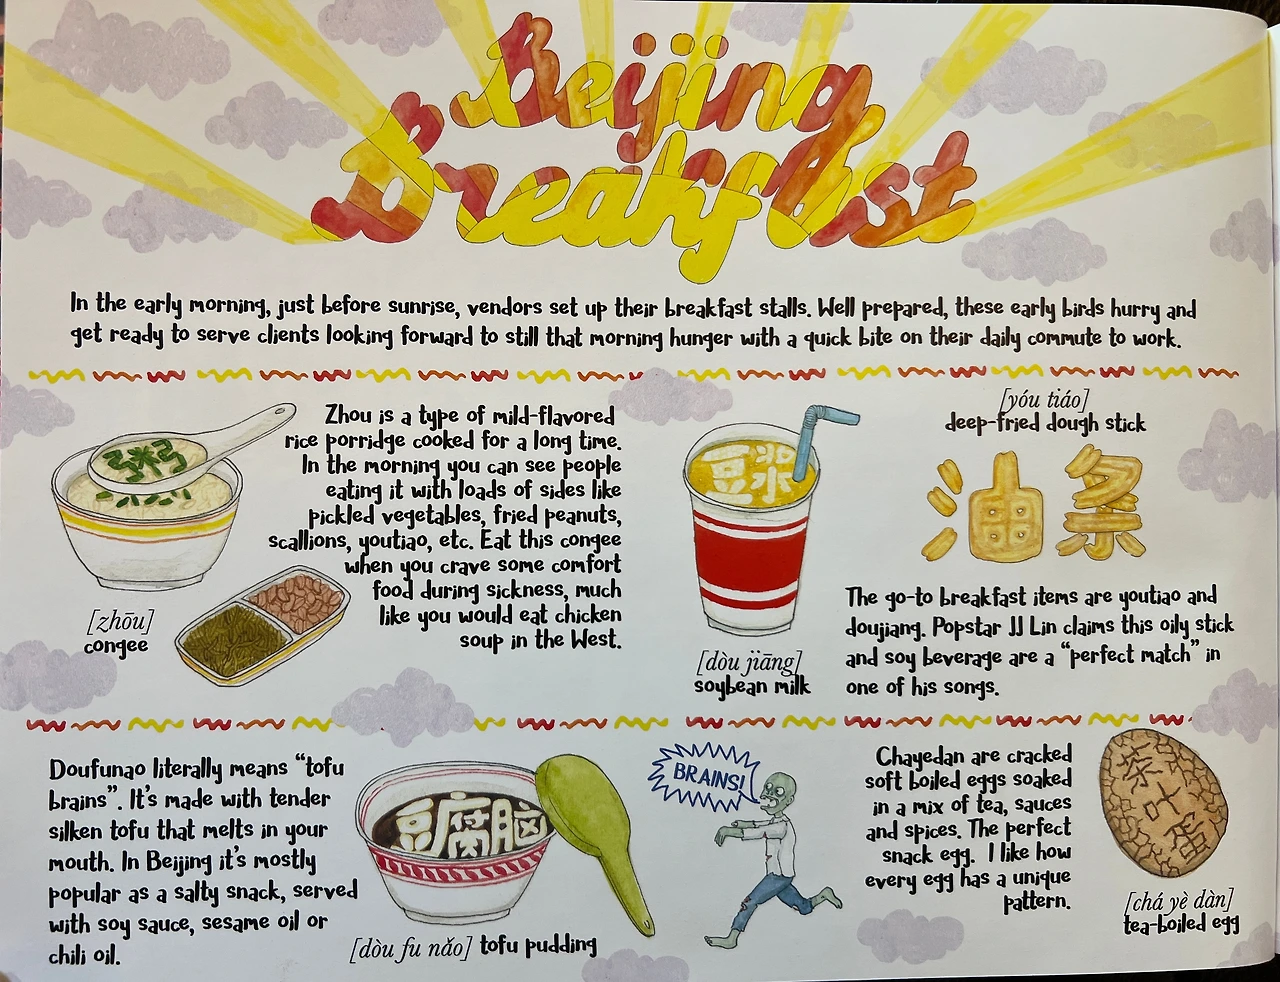 Beijing
Breakfast
In the early morning, just before sunrise, vendors set up their breakfast stalls. Well prepared, these early birds hurry and
get ready to serve clients looking forward to still that morning hunger with a quick bite on their daily commute to work.
粥
[zhōu]
congee
Zhou is a type of mild-flavored
rice porridge cooked for a long time.
In the morning you can see people
eating it with loads of sides like
pickled vegetables, fried peanuts,
scallions, youtiao, etc. Eat this congee
when you crave some comfort
food during sickness, much
like you would eat chicken
soup in the West.
豆浆
[dòu jiāng]
soybean milk
[yóu tiáo]
deep-fried dough stick
油条
The go-to breakfast items are youtiao and
doujiang. Popstar JJ Lin claims this oily stick
and soy beverage are a “perfect match” in
one of his songs.
Doufunao literally means “tofu
brains”. It’s made with tender
silken tofu that melts in your
mouth. In Beijing it’s mostly
popular as a salty snack, served
with soy sauce, sesame oil or
chili oil.
豆腐脑
[dòu fu nǎo] tofu pudding
BRAINS!
Chayedan are cracked
soft boiled eggs soaked
in a mix of tea, sauces
and spices. The perfect
snack egg. I like how
every egg has a unique
pattern.
茶叶蛋
[chá yè dàn]
tea-boiled egg